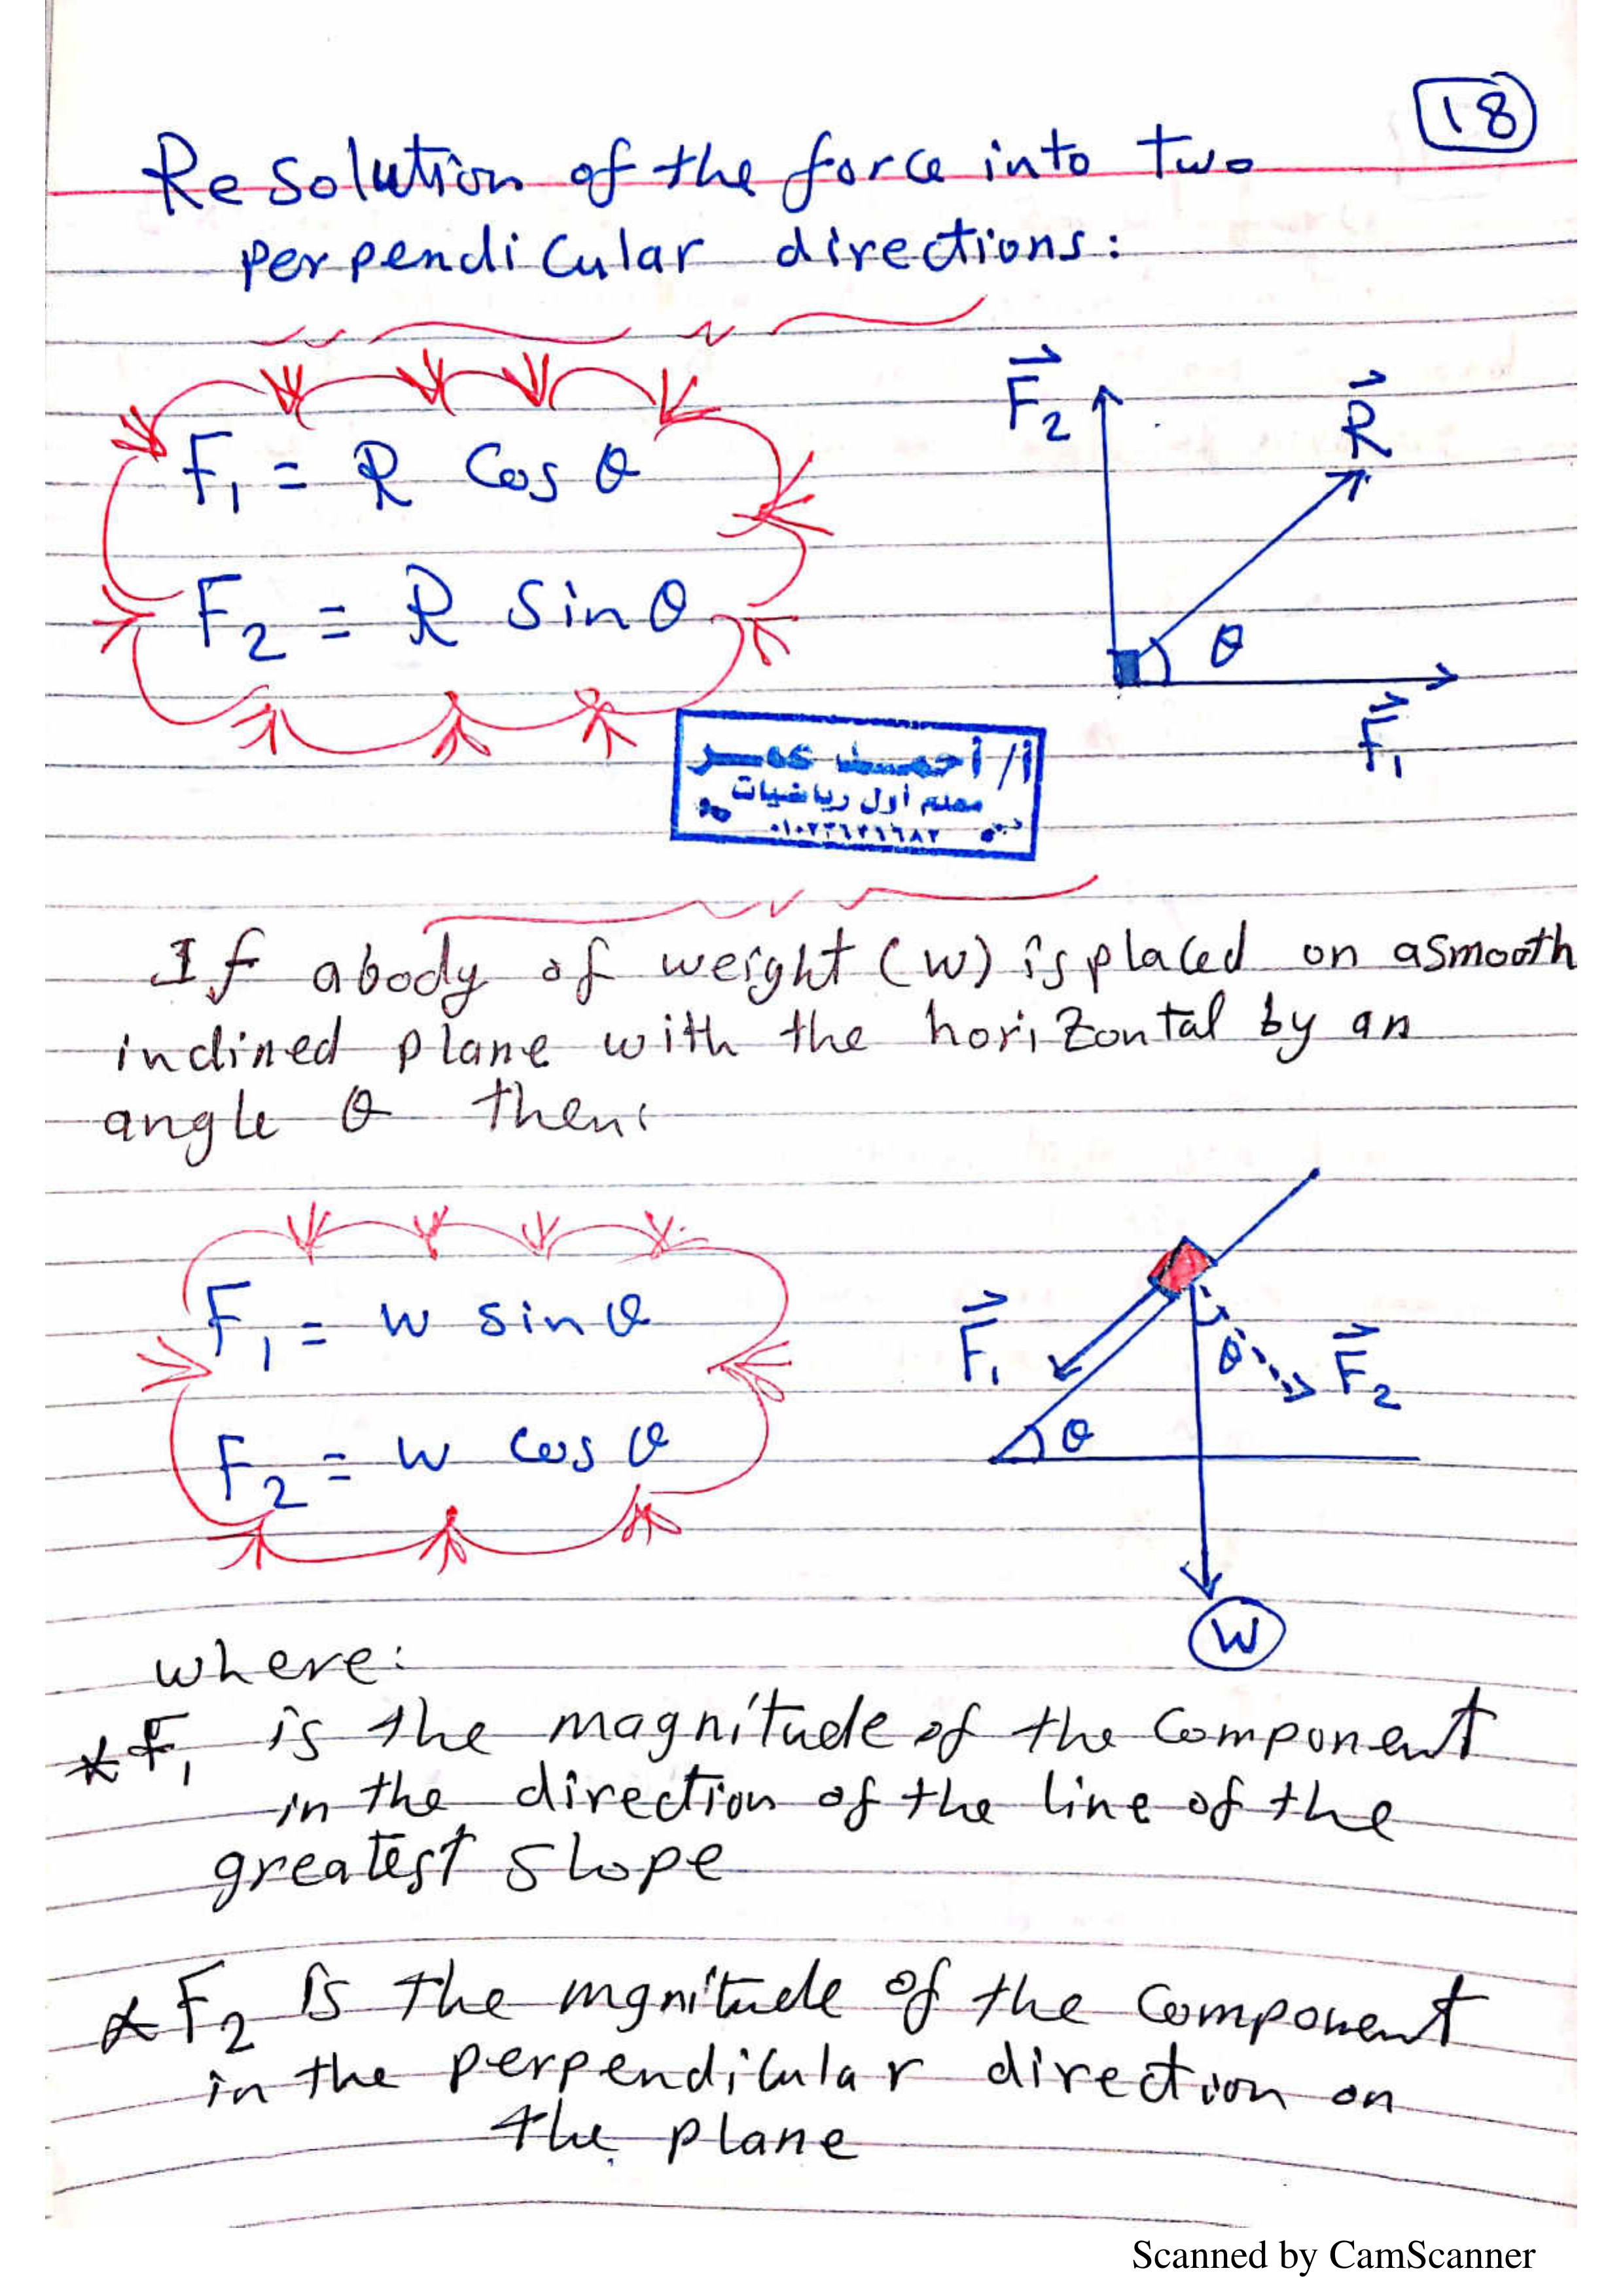 18
Resolution of the force into two
perpendicular directions:
F₁ = R Cos θ
F₂ = R Sin θ
F₂
R
θ
F₁
أ/ أحمد عمر
معلم أول رياضيات
If a body of weight (w) is placed on a smooth
inclined plane with the horizontal by an
angle θ then:
F₁ = w sin θ
F₂ = w cos θ
F₁
θ
F₂
θ
W
where:
* F₁ is the magnitude of the Component
in the direction of the line of the
greatest slope
* F₂ is the mgnitude of the Component
in the perpendicular direction on
the plane
Scanned by CamScanner